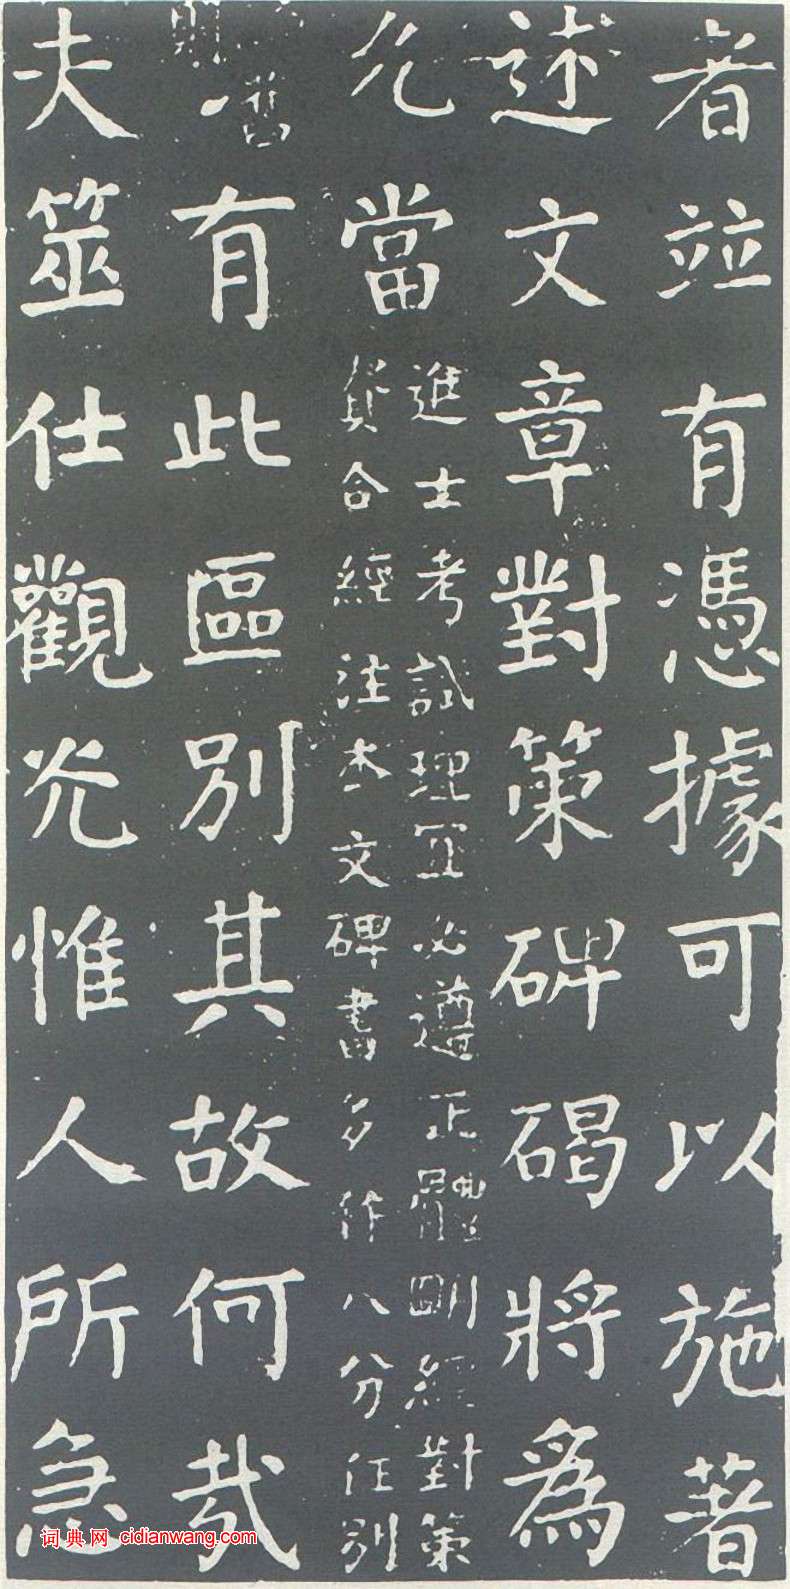 者竝有憑據可以施著
述文章對策碑碣將爲
允當
進士考試理宜必遵正體明經對策
貴合經注本文碑書多作八分任別
舊
則
有此區別其故何哉
夫筮仕觀光惟人所急
词典网 cidianwang.com